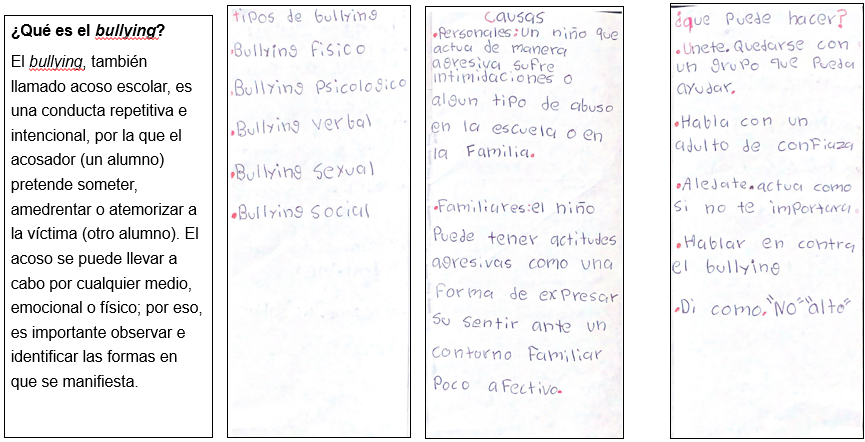 ¿Qué es el bullying?
El bullying, también
llamado acoso escolar, es
una conducta repetitiva e
intencional, por la que el
acosador (un alumno)
pretende someter,
amedrentar o atemorizar a
la víctima (otro alumno). El
acoso se puede llevar a
cabo por cualquier medio,
emocional o físico; por eso,
es importante observar e
identificar las formas en
que se manifiesta.
tipos de bullying
.Bullying Fisico
.Bullying Psicologico
.Bullying verbal
.Bullying sexual
.Bullying social
Causas
.Personales: Un niño que
actua de manera
agresiva sufre
intimidaciones o
algun tipo de abuso
en la escuela o en
la Familia.
.Familiares: el niño
Puede tener actitudes
agresivas como una
Forma de expresar
su sentir ante un
contorno Familiar
Poco afectivo.
¿que Puede hacer?
.Unete. Quedarse con
un grupo que Pueda
ayudar.
.Habla con un
adulto de confiaza
.Aledate. actua como
si no te importara.
.Hablar en contra
el bullying
.Di como. "NO" "alto"